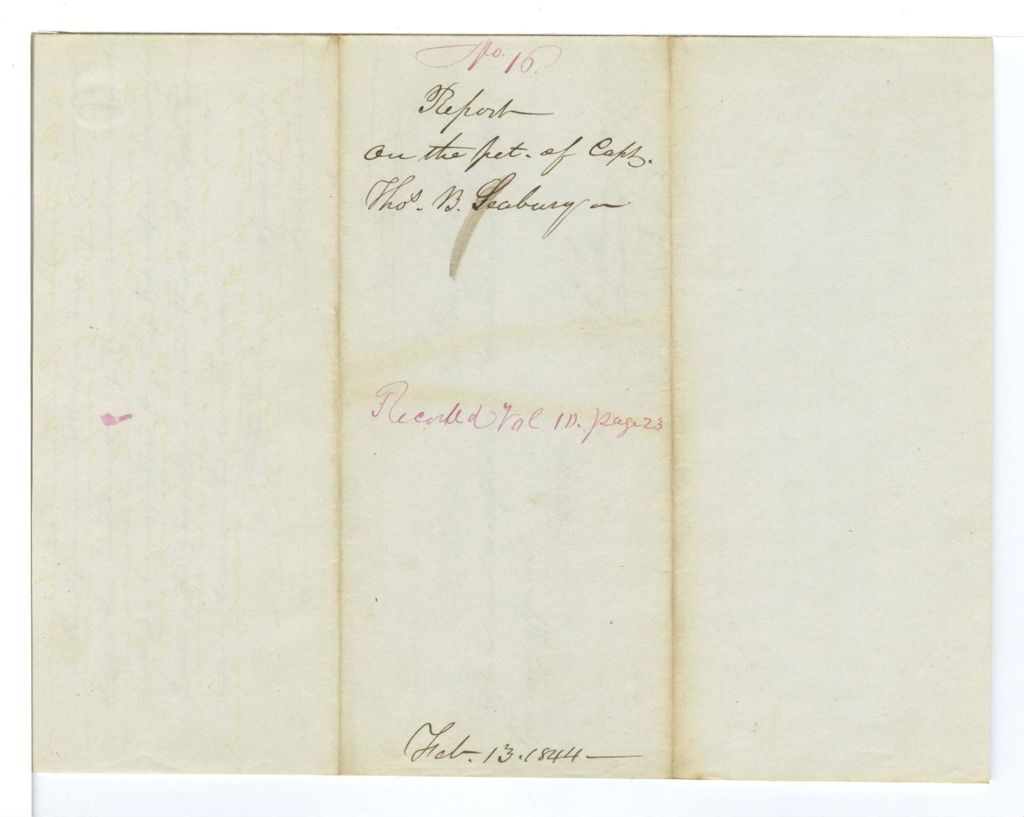 No. 16.
Report
on the pet. of Capt.
Thos. B. Seabury
Recorded Vol 10. page 23
Feb. 13. 1844